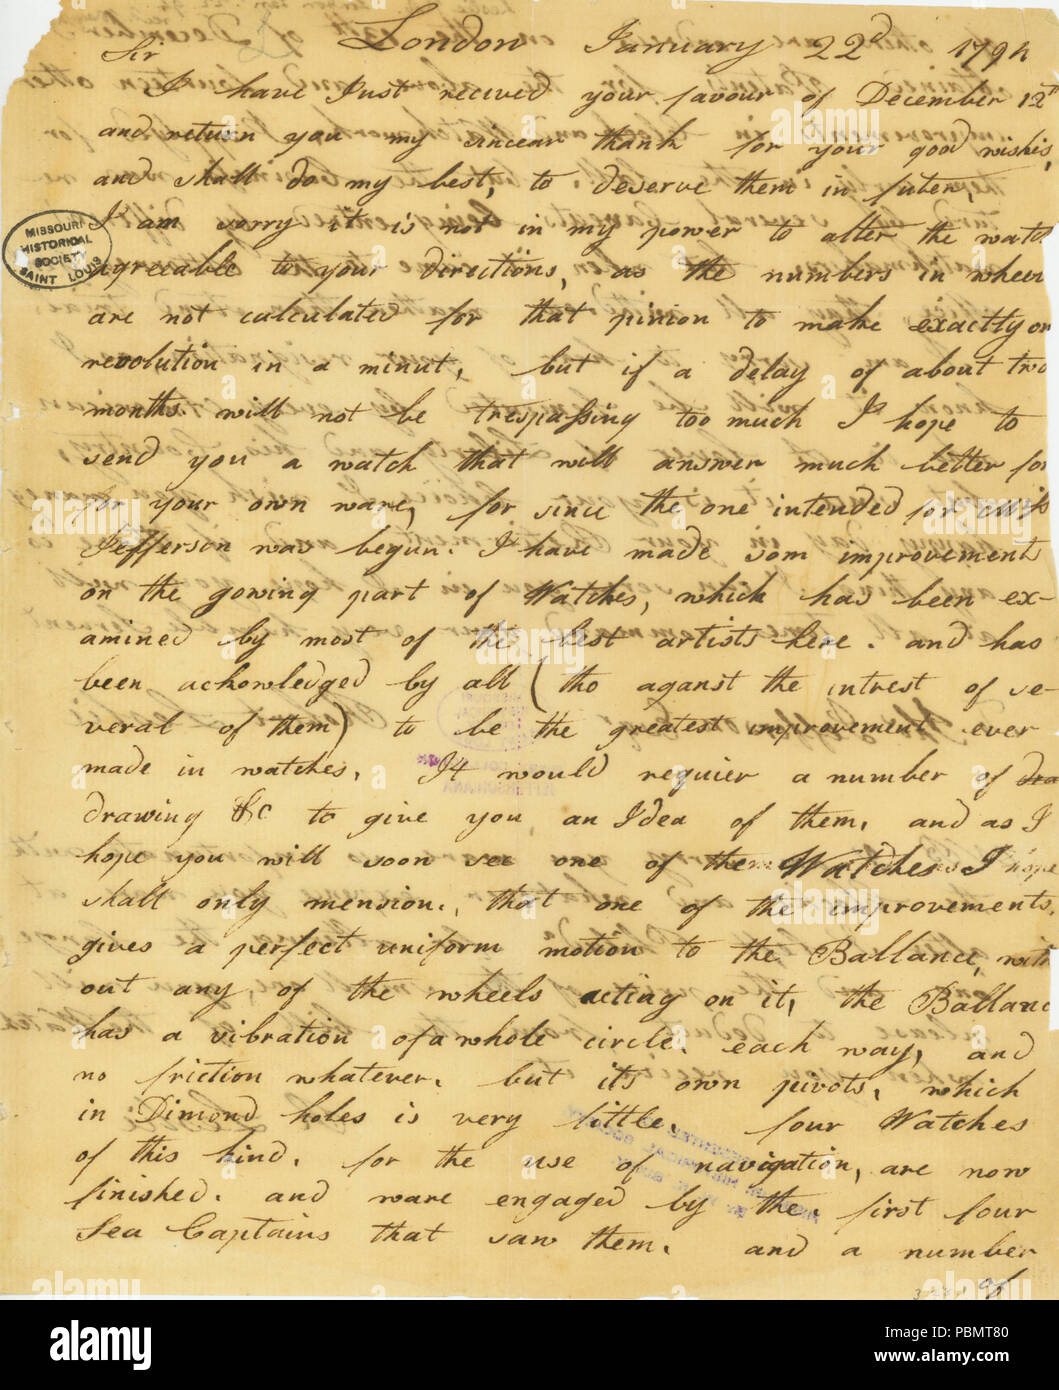 London January 22d 1794
Sir
I have Just recived your favour of December 12th
and return you my sincear thank for your good wishis,
and shall do my best, to deserve them in futer,
I am sorry it is not in my power to alter the watch
agreeable to your directions, as the numbers in wheel
are not calculated for that pinion to make exactly on
revolution in a minut, but if a delay of about two
months will not be trespassing too much I hope to
send you a watch that will answer much better for
for your own ware, for since the one intended for miss
Jefferson was begun. I have made som improvements
on the gowing part of Watches, which has been ex-
amined by most of the best artists here. and has
been acknowledged by all (tho aganst the intrest of se-
veral of them) to be the greatest improvement ever
made in watches. It would requier a number of dra
drawing &c to give you an Idea of them, and as I
hope you will soon see one of them Watches I hope
shall only mension., that one of the improvements,
gives a perfect uniform motion to the Ballance, with
out any, of the wheels acting on it, the Ballanc
has a vibration of a whole circle. each way, and
no friction whatever. but it's own pivots, which
in Dimond holes is very little. four Watches
of this kind. for the use of navigation, are now
finished. and ware engaged by the first four
Sea Captains that saw them. and a number
of
MISSOURI
HISTORICAL
SOCIETY
SAINT LOUIS
alamy stock photo
PBMT80
www.alamy.com